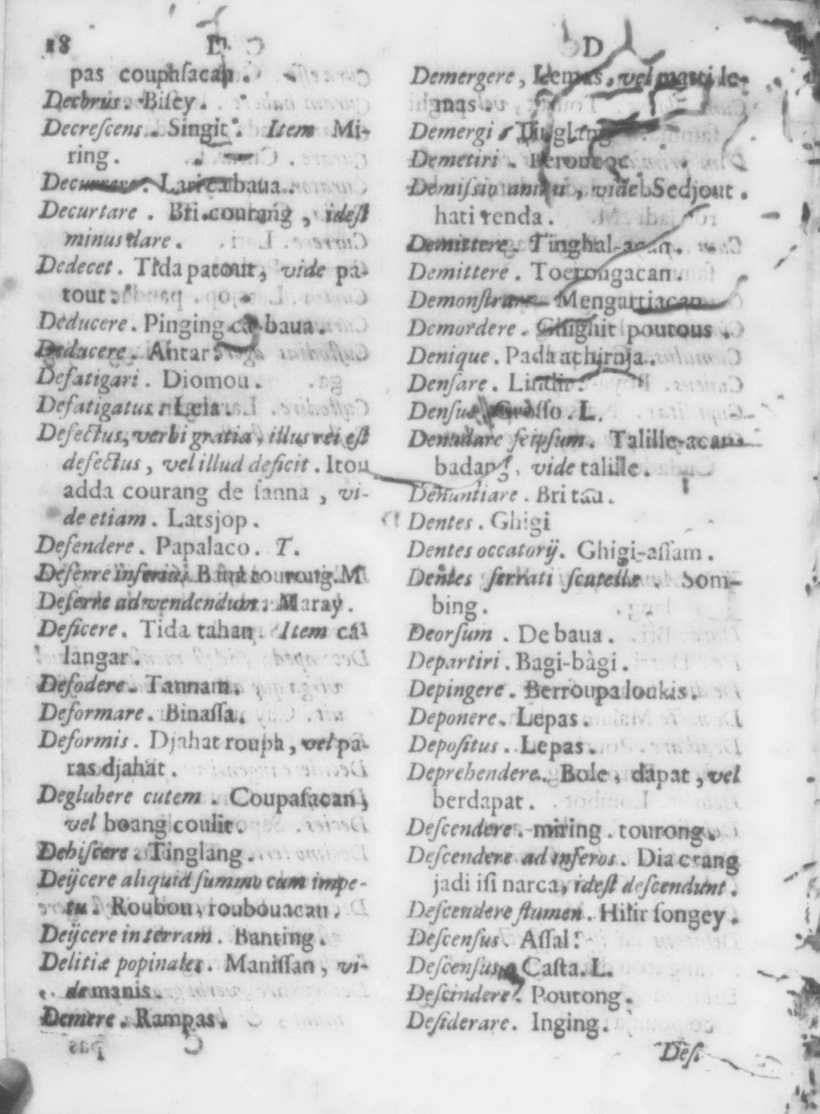 18 D
pas couphſacan.
Decbrus. Biſey.
Decreſcens. Singit. Item Mi-
ring.
Lari cabaua.
Decurtare. Bri courang, ideſt
minus dare.
Dedecet. Tida patout, vide pa-
tout.
Deducere. Pinging ca baua.
Deducere. Antar.
Defatigari. Diomou.
Defatigatus. Leia.
Defectus, verbi gratia, illus rei eſt
defectus, vel illud deficit. Itou
adda courang de ſanna, vi-
de etiam. Latsjop.
Defendere. Papalaco. T.
Deferre inferius tourong. M
Deferre ad vendendum. Maray.
Deficere. Tida tahan. Item ca-
langar.
Defodere. Tannam.
Deformare. Binaſſa.
Deformis. Djahat roupa, vel pa-
ras djahat.
Deglubere cutem. Coupaſacan,
vel boang coulit.
Dehiſcere. Tinglang.
Deijcere aliquid ſummo cum impe-
tu. Roubou, roubouacan.
Deijcere in terram. Banting.
Delitiæ popinales. Maniſſan, vi-
de manis.
Demere. Rampas.
D
Demergere, Lemas, vel matti le-
mas.
Demergi. Tinglang
Demetiri.
Demiſsio animi, vide Sedjout.
hati renda.
Demittere. Tinghal-acan.
Demittere. Toerongacan.
Demonſtrare. Mengartiacan.
Demordere. Ghighit poutous.
Denique. Pada achirnja.
Denſare.
Denſus. Groſſo. L.
Denudare ſeipſum. Talille-acan
badan, vide talille.
Denuntiare. Bri tau.
Dentes. Ghigi
Dentes occatorij. Ghigi-aſſam.
Dentes ſerrati ſcutellæ. Som-
bing.
Deorſum. De baua.
Departiri. Bagi-bàgi.
Depingere. Berroupa loukis.
Deponere. Lepas.
Depoſitus. Lepas.
Deprehendere. Bole, dapat, vel
berdapat.
Deſcendere. miring. tourong.
Deſcendere ad inferos. Dia orang
jadi iſi narca, ideſt deſcendunt.
Deſcendere flumen. Hilir ſongey.
Deſcenſus. Aſſal.
Deſcenſus. Caſta. L.
Deſcindere. Poutong.
Deſiderare. Inging.
Deſi-